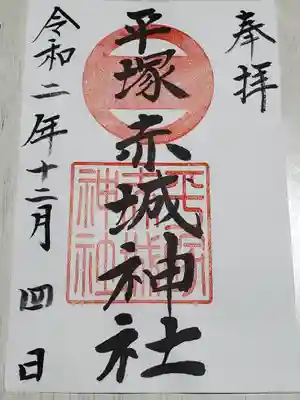 奉拝
平塚赤城神社
令和二年十二月四日